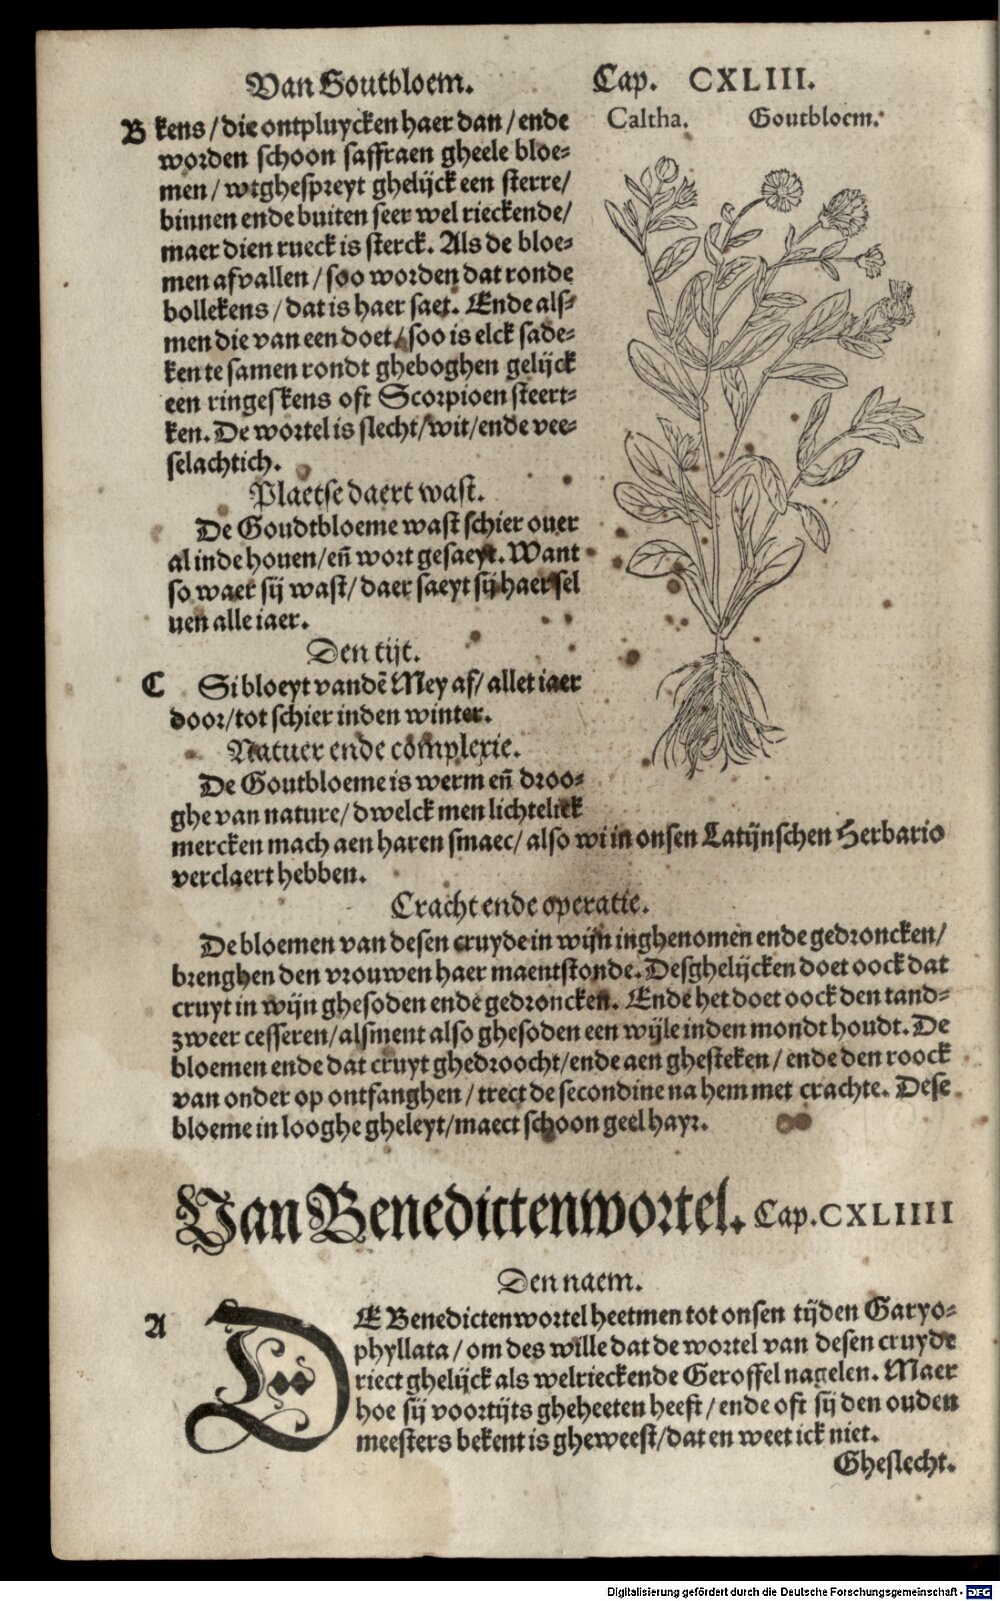 Van Goutbloem. Cap. CXLIII.
Caltha. Goutbloem.
B kens / die ontpluycken haer dan / ende
worden schoon saffraen gheele bloe-
men / wtghespreyt ghelijck een sterre /
binnen ende buiten seer wel rieckende /
maer dien rueck is sterck. Als de bloe-
men afvallen / soo worden dat ronde
bollekens / dat is haer saet. Ende als-
men die van een doet / soo is elck sade-
ken te samen rondt gheboghen gelijck
een ringeskens oft Scorpioen steert-
ken. De wortel is slecht / wit / ende vee-
selachtich.
Plaetse daert wast.
De Goudtbloeme wast schier ouer
al inde houen / eñ wort gesaeyt. Want
so waer sij wast / daer saeyt sij haer sel
uen alle iaer.
Den tijt.
C Si bloeyt vandē Mey af / allet iaer
door / tot schier inden winter.
Natuer ende complexie.
De Goutbloeme is werm eñ droo-
ghe van nature / dwelck men lichtelick
mercken mach aen haren smaec / also wi in onsen Latijnschen Herbario
verclaert hebben.
Cracht ende operatie.
De bloemen van desen cruyde in wijn inghenomen ende gedroncken /
brenghen den vrouwen haer maentstonde. Desghelijcken doet oock dat
cruyt in wijn ghesoden ende gedroncken. Ende het doet oock den tand-
zweer cesseren / alsment also ghesoden een wijle inden mondt houdt. De
bloemen ende dat cruyt ghedroocht / ende aen ghesteken / ende den roock
van onder op ontfanghen / trect de secondine na hem met crachte. Dese
bloeme in looghe gheleyt / maect schoon geel hayr.
Van Benedictenwortel. Cap. CXLIIII
Den naem.
A DE Benedictenwortel heetmen tot onsen tijden Garyo-
phyllata / om des wille dat de wortel van desen cruyde
riect ghelijck als welrieckende Geroffel nagelen. Maer
hoe sij voortijts gheheeten heeft / ende oft sij den ouden
meesters bekent is gheweest / dat en weet ick niet.
Gheslecht.
Digitalisierung gefördert durch die Deutsche Forschungsgemeinschaft - DFG